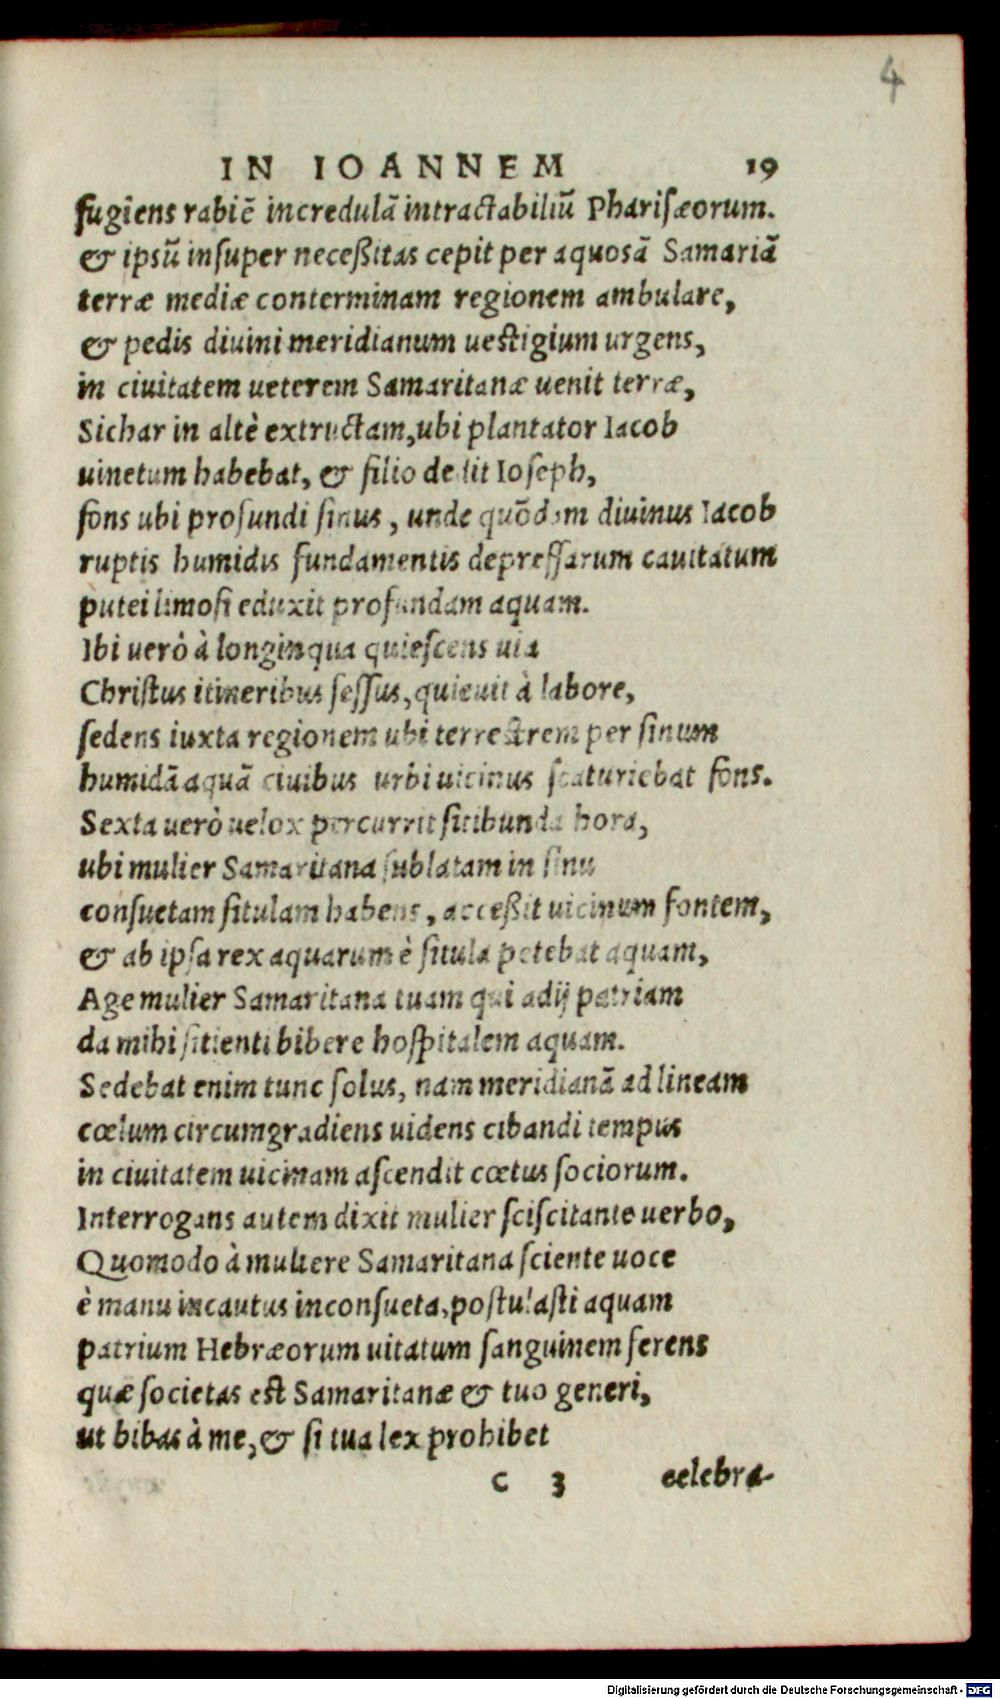 4
IN IOANNEM 19
fugiens rabiẽ incredulã intractabiliũ Pharisæorum.
& ipsũ insuper neceßitas cepit per aquosã Samariã
terræ mediæ conterminam regionem ambulare,
& pedis diuini meridianum uestigium urgens,
in ciuitatem ueterem Samaritanæ uenit terræ,
Sichar in altè extructam, ubi plantator Iacob
uinetum habebat, & filio dedit Ioseph,
fons ubi profundi sinus, unde quõdam diuinus Iacob
ruptis humidis fundamentis depressarum cauitatum
putei limosi eduxit profundam aquam.
Ibi uerò à longinqua quiescens uia
Christus itineribus fessus, quieuit à labore,
sedens iuxta regionem ubi terrestrem per sinum
humidã aquã ciuibus urbi uicinus scaturiebat fons.
Sexta uerò uelox percurrit sitibunda hora,
ubi mulier Samaritana sublatam in sinu
consuetam situlam habens, acceßit uicinum fontem,
& ab ipsa rex aquarum è situla petebat aquam,
Age mulier Samaritana tuam qui adij patriam
da mihi sitienti bibere hospitalem aquam.
Sedebat enim tunc solus, nam meridianã ad lineam
cœlum circumgradiens uidens cibandi tempus
in ciuitatem uicinam ascendit cœtus sociorum.
Interrogans autem dixit mulier sciscitante uerbo,
Quomodo à muliere Samaritana sciente uoce
è manu incautus inconsueta, postulasti aquam
patrium Hebræorum uitatum sanguinem ferens
quæ societas est Samaritanæ & tuo generi,
ut bibas à me, & si tua lex prohibet
c 3 celebra-
Digitalisierung gefördert durch die Deutsche Forschungsgemeinschaft - DFG